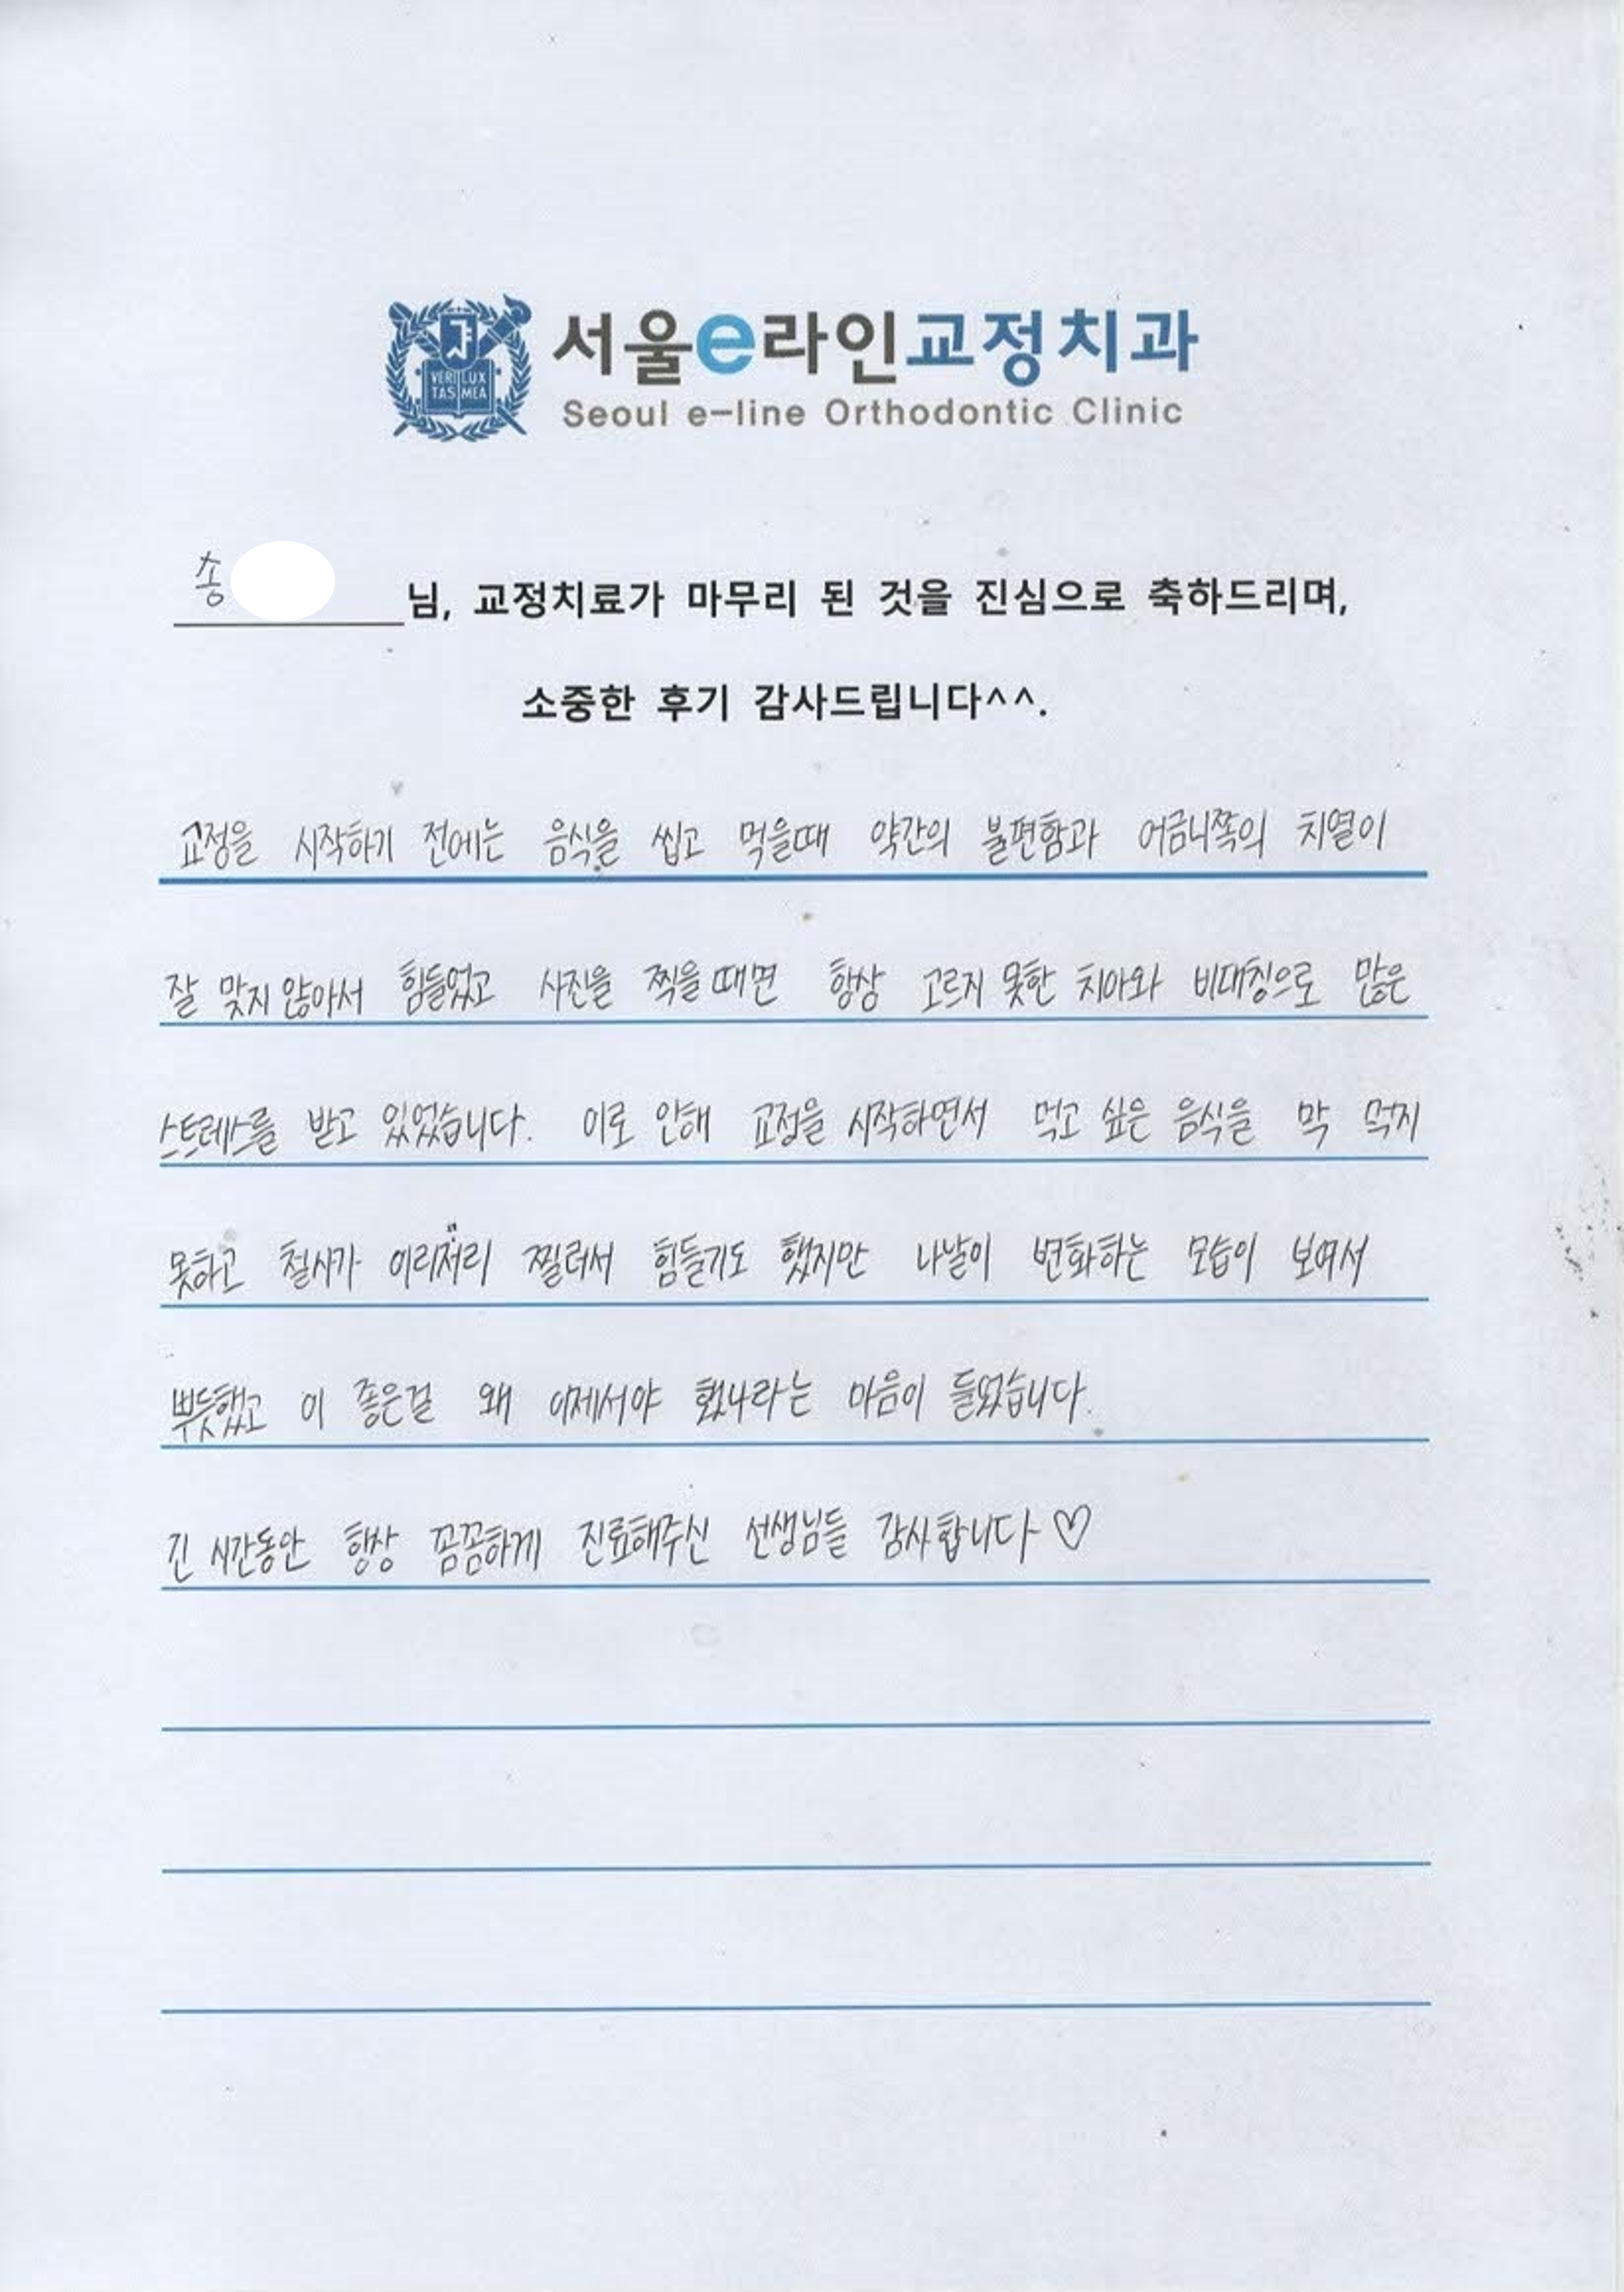 VERI LUX
TAS MEA
서울e라인교정치과
Seoul e-line Orthodontic Clinic
송 님, 교정치료가 마무리 된 것을 진심으로 축하드리며,
소중한 후기 감사드립니다^^.
교정을 시작하기 전에는 음식을 씹고 먹을때 약간의 불편함과 어금니쪽의 치열이
잘 맞지 않아서 힘들었고 사진을 찍을 때면 항상 고르지 못한 치아와 비대칭으로 많은
스트레스를 받고 있었습니다. 이로 인해 교정을 시작하면서 먹고 싶은 음식을 막 먹지
못하고 철사가 이리저리 찔려서 힘들기도 했지만 나날이 변화하는 모습이 보여서
뿌듯했고 이 좋은걸 왜 이제서야 했나라는 마음이 들었습니다.
긴 시간동안 항상 꼼꼼하게 진료해주신 선생님들 감사합니다♡